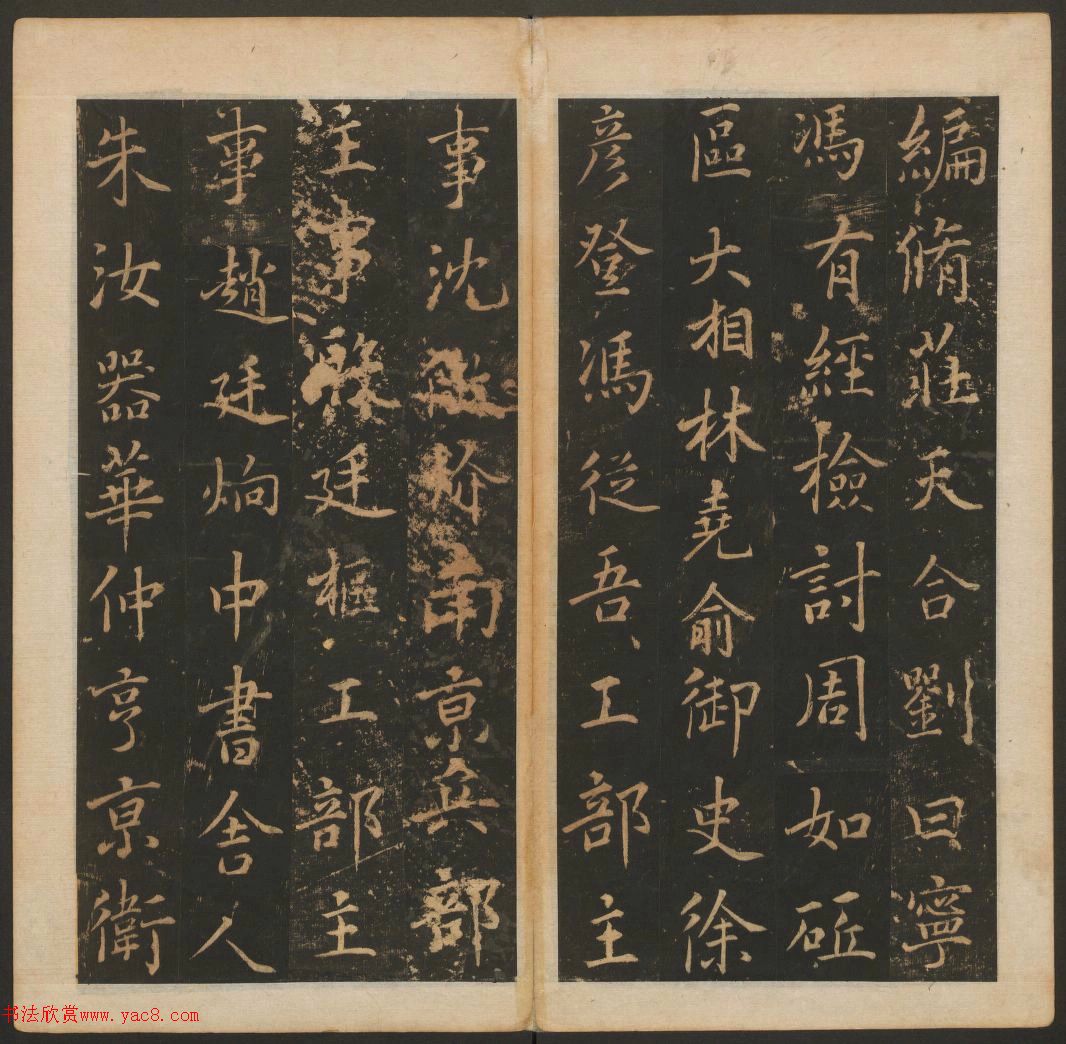 編脩莊天合劉曰寧
馮有經檢討周如砥
區大相林堯俞御史徐
彥登馮從吾工部主
事沈儆炌南京兵部
主事殷廷樞工部主
事趙廷烱中書舍人
朱汝器華仲亨京衛
书法欣赏www.yac8.com